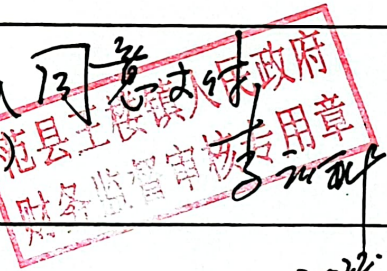 同意支付
范县王楼镇人民政府
财务监督审核专用章